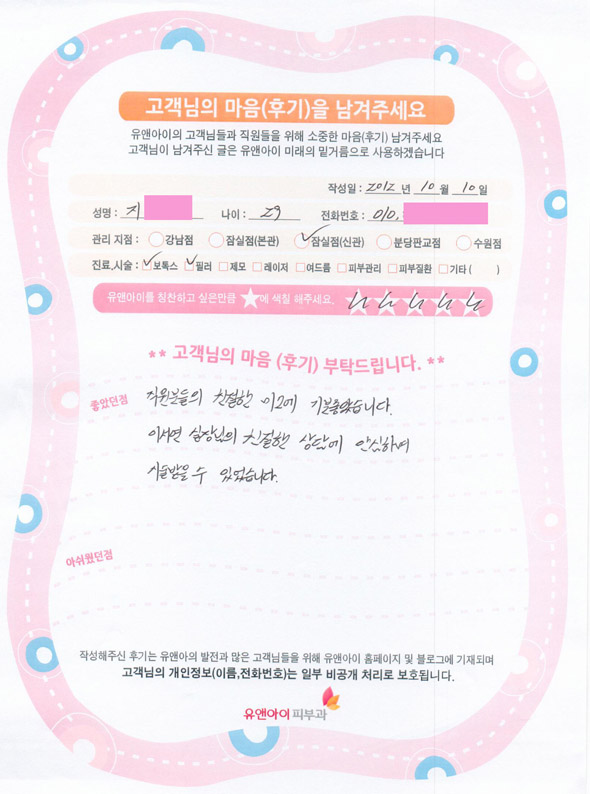 고객님의 마음(후기)을 남겨주세요
유앤아이의 고객님들과 직원들을 위해 소중한 마음(후기) 남겨주세요
고객님이 남겨주신 글은 유앤아이 미래의 밑거름으로 사용하겠습니다
작성일 : 2012 년 10 월 10 일
성명 : 지 나이 : 29 전화번호 : 010,
관리 지점 : 강남점 잠실점(본관) 잠실점(신관) 분당판교점 수원점
진료,시술 : 보톡스 필러 제모 레이저 여드름 피부관리 피부질환 기타 ( )
유앤아이를 칭찬하고 싶은만큼 ★에 색칠 해주세요.
** 고객님의 마음 (후기) 부탁드립니다. **
좋았던점 직원분들의 친절한 미소에 기분좋았습니다.
이서연 실장님의 친절한 상담에 안심하며
시술받을 수 있었습니다.
아쉬웠던점
작성해주신 후기는 유앤아의 발전과 많은 고객님들을 위해 유앤아이 홈페이지 및 블로그에 기재되며
고객님의 개인정보(이름,전화번호)는 일부 비공개 처리로 보호됩니다.
유앤아이 피부과